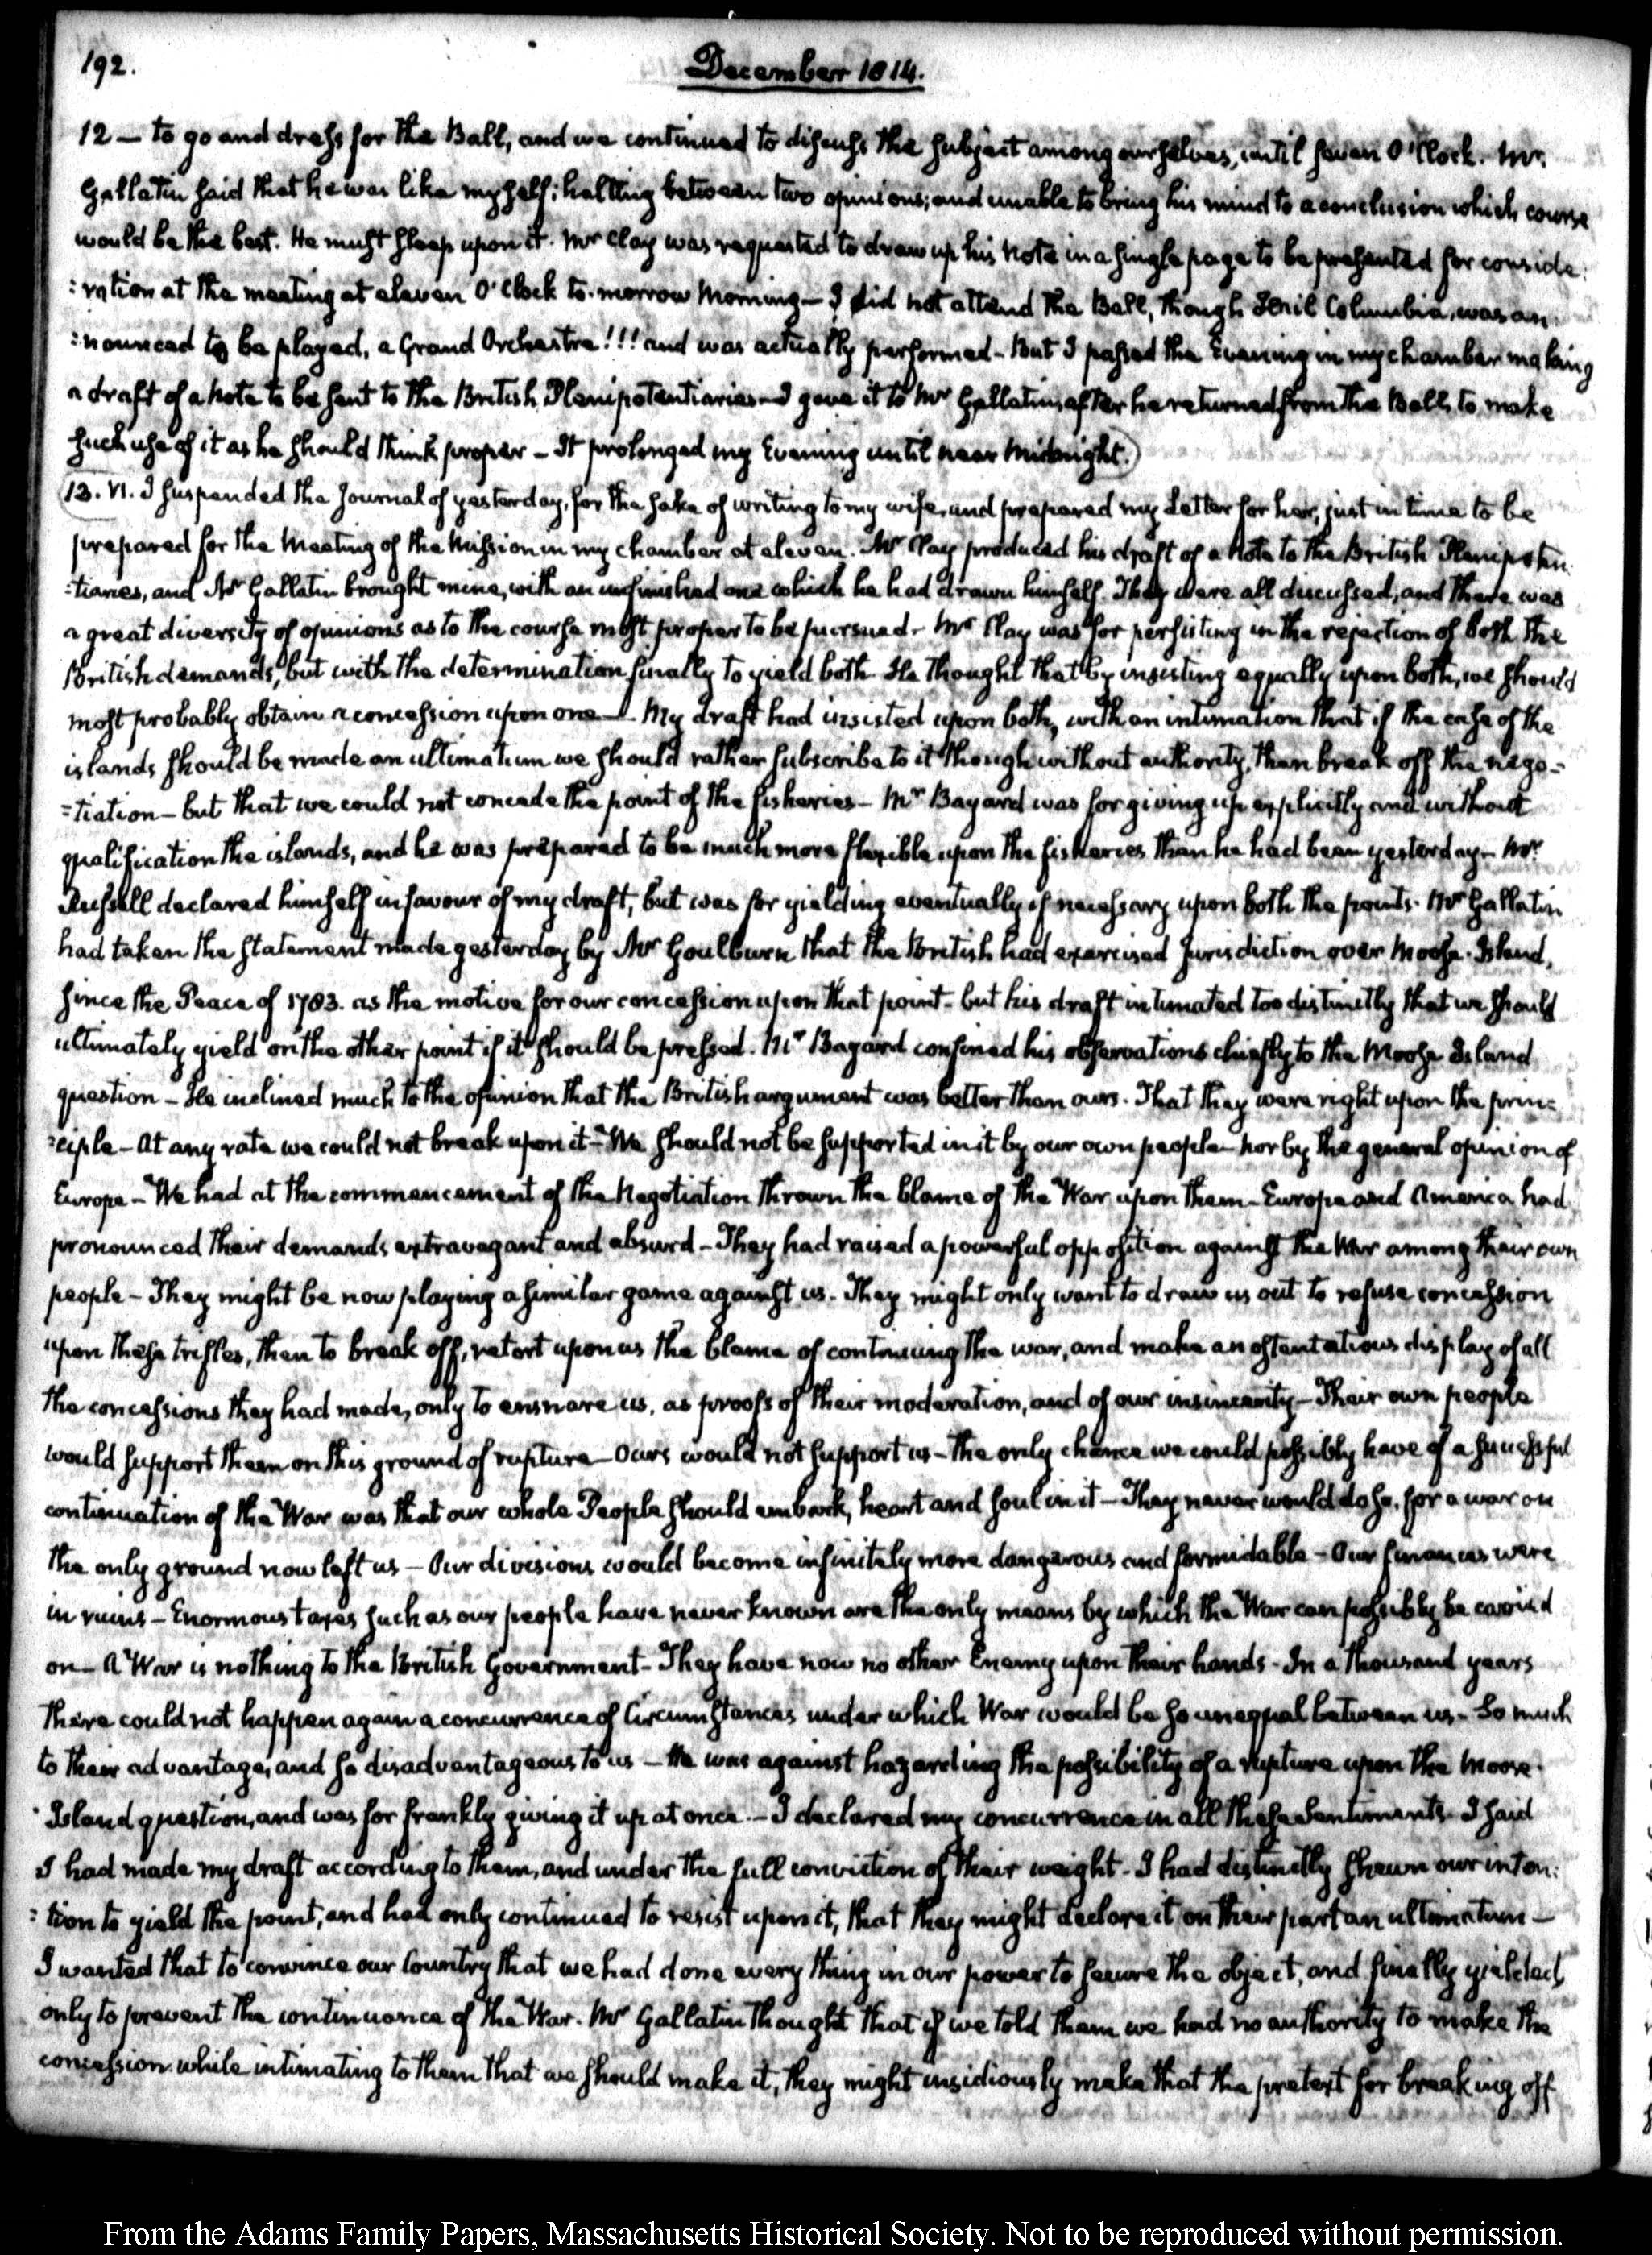 192.
December 1814.
12 — to go and dress for the Ball, and we continued to discuss the subject among ourselves, until seven O'Clock. Mr.
Gallatin said that he was like myself; halting between two opinions; and unable to bring his mind to a conclusion which course
would be the best. He must sleep upon it. Mr Clay was requested to draw up his Note in a single page to be presented for conside:
:ration at the meeting at eleven O'Clock to-morrow Morning — I did not attend the Ball, though Heil Columbia, was an
:nounced to be played, a Grand Orchestre!!! and was actually performed — But I passed the Evening in my chamber making
a draft of a Note to be sent to the British Plenipotentiaries — I gave it to Mr Gallatin, after he returned from the Ball, to make
such use of it as he should think proper — It prolonged my Evening until near Midnight.
13. VI. I suspended the Journal of yesterday, for the sake of writing to my wife, and prepared my Letter for her, just in time to be
prepared for the Meeting of the Mission in my chamber at eleven. Mr Clay produced his draft of a Note to the British Plenipoten
:tiaries, and Mr Gallatin brought mine, with an unfinished one which he had drawn himself. They were all discussed, and there was
a great diversity of opinions as to the course most proper to be pursued — Mr Clay was for persisting in the rejection of both the
British demands, but with the determination finally to yield both. He thought that by insisting equally upon both, we should
most probably obtain a concession upon one — My draft had insisted upon both, with an intimation that if the case of the
islands should be made an ultimatum we should rather subscribe to it though without authority, than break off the nego=
=tiation — but that we could not concede the point of the fisheries — Mr Bayard was for giving up explicitly and without
qualification the islands, and he was prepared to be much more flexible upon the fisheries than he had been yesterday — Mr
Russell declared himself in favour of my draft, but was for yielding eventually if necessary upon both the points. Mr Gallatin
had taken the statement made yesterday by Mr Goulburn that the British had exercised jurisdiction over Moose-Island,
since the Peace of 1783. as the motive for our concession upon that point — but his draft intimated too distinctly that we should
ultimately yield on the other point if it should be pressed. Mr Bayard confined his observations chiefly to the Moose Island
question — He inclined much to the opinion that the British argument was better than ours. That they were right upon the prin=
:ciple — At any rate we could not break upon it — We should not be supported in it by our own people — nor by the general opinion of
Europe — We had at the commencement of the Negotiation thrown the blame of the War upon them — Europe and America had
pronounced their demands extravagant and absurd — They had raised a powerful opposition against the War among their own
people — They might be now playing a similar game against us. They might only want to draw us out to refuse concession
upon these trifles, then to break off, retort upon us the blame of continuing the war, and make an ostentatious display of all
the concessions they had made, only to ensnare us, as proofs of their moderation, and of our insincerity — Their own people
would support them on this ground of rupture — Ours would not support us — the only chance we could possibly have of a successful
continuation of the War was that our whole People should embark, heart and soul in it — They never would do so, for a war on
the only ground now left us — Our divisions would become infinitely more dangerous and formidable — Our finances were
in ruins — Enormous taxes such as our people have never known are the only means by which the War can possibly be carried
on — A War is nothing to the British Government — They have now no other Enemy upon their hands — In a thousand years
there could not happen again a concurrence of Circumstances under which War would be so unequal between us — So much
to their advantage, and so disadvantageous to us — He was against hazarding the possibility of a rupture upon the Moose-
Island question, and was for frankly giving it up at once. — I declared my concurrence in all these Sentiments. I said
I had made my draft according to them, and under the full conviction of their weight — I had distinctly shewn our inten:
:tion to yield the point, and had only continued to resist upon it, that they might declare it on their part an ultimatum —
I wanted that to convince our Country that we had done every thing in our power to secure the object, and finally yielded
only to prevent the continuance of the War. Mr Gallatin thought that if we told them we had no authority to make the
concession while intimating to them that we should make it, they might insidiously make that the pretext for breaking off
From the Adams Family Papers, Massachusetts Historical Society. Not to be reproduced without permission.